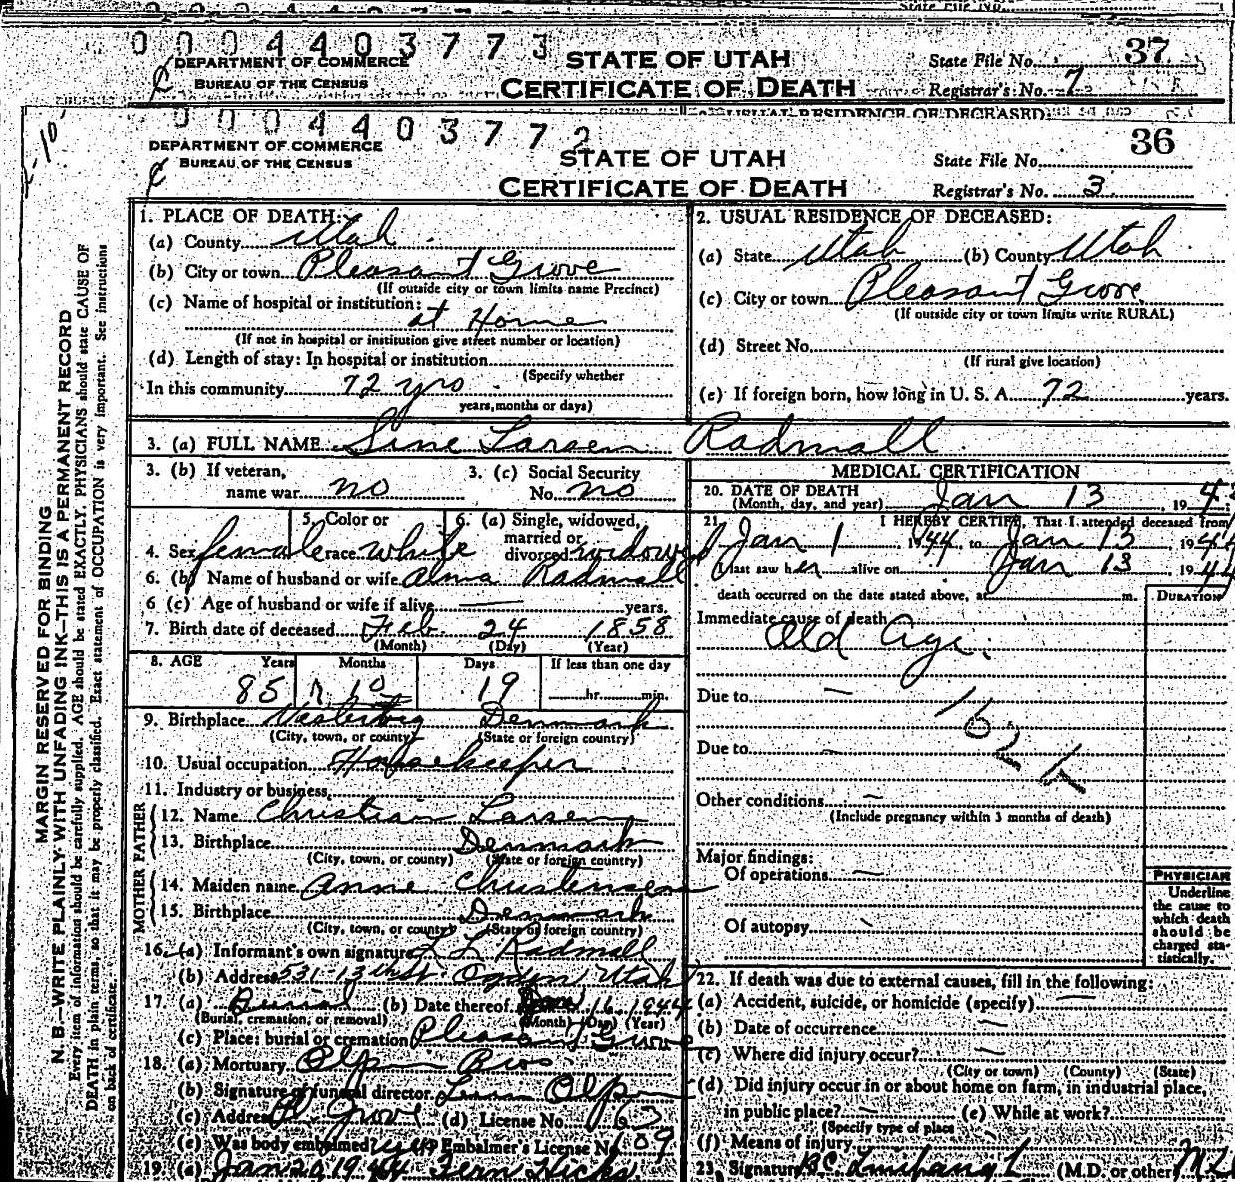 State File No.
0 0 0 4 4 0 3 7 7 3
DEPARTMENT OF COMMERCE
BUREAU OF THE CENSUS
STATE OF UTAH
CERTIFICATE OF DEATH
State File No. 37
Registrar's No. 7
USUAL RESIDENCE OF DECEASED:
0 0 0 4 4 0 3 7 7 2
DEPARTMENT OF COMMERCE
BUREAU OF THE CENSUS
STATE OF UTAH
CERTIFICATE OF DEATH
State File No. 36
Registrar's No. 3
MARGIN RESERVED FOR BINDING
N. B.—WRITE PLAINLY WITH UNFADING INK—THIS IS A PERMANENT RECORD
Every item of information should be carefully supplied. AGE should be stated EXACTLY. PHYSICIANS should state CAUSE OF
DEATH in plain terms, so that it may be properly classified. Exact statement of OCCUPATION is very important. See instructions
on back of certificate.
1. PLACE OF DEATH:
(a) County Utah
(b) City or town Pleasant Grove
(If outside city or town limits name Precinct)
(c) Name of hospital or institution:
at Home
(If not in hospital or institution give street number or location)
(d) Length of stay: In hospital or institution
(Specify whether
In this community 72 yrs
years, months or days)
2. USUAL RESIDENCE OF DECEASED:
(a) State Utah (b) County Utah
(c) City or town Pleasant Grove
(If outside city or town limits write RURAL)
(d) Street No.
(If rural give location)
(e) If foreign born, how long in U. S. A. 72 years.
3. (a) FULL NAME Sine Larsen Radmall
3. (b) If veteran, name war no
3. (c) Social Security No. no
4. Sex female
5. Color or race white
6. (a) Single, widowed, married or divorced widowed
6. (b) Name of husband or wife Alma Radmall
6 (c) Age of husband or wife if alive — years.
7. Birth date of deceased Feb. 24 1858
(Month) (Day) (Year)
8. AGE Years Months Days If less than one day
85 10 19 hr. min.
9. Birthplace Denmark
(City, town, or county) (State or foreign country)
10. Usual occupation Housekeeper
11. Industry or business
FATHER
12. Name Christian Larsen
13. Birthplace Denmark
(City, town, or county) (State or foreign country)
MOTHER
14. Maiden name Anne Christensen
15. Birthplace Denmark
(City, town, or county) (State or foreign country)
16. (a) Informant's own signature L L Radmall
(b) Address 531-13th St. Ogden, Utah
17. (a) Burial (b) Date thereof Jan 16 1944
(Burial, cremation, or removal) (Month) (Day) (Year)
(c) Place: burial or cremation Pleasant Grove
18. (a) Mortuary Olpin Bros
(b) Signature of funeral director Olpin
(c) Address Pl Grove (d) License No. 63
(e) Was body embalmed? yes Embalmer's License No. 109
19. (a) Jan 20 1944 Fern Hicks
MEDICAL CERTIFICATION
20. DATE OF DEATH
(Month, day, and year) Jan 13, 194
21. I HEREBY CERTIFY, That I attended deceased from
Jan 1, 1944, to Jan 13, 1944
I last saw her alive on Jan 13 1944
death occurred on the date stated above, at m.
DURATION
Immediate cause of death
Old Age.
Due to —
162
Due to —
Other conditions —
(Include pregnancy within 3 months of death)
Major findings:
Of operations —
Of autopsy
PHYSICIAN
Underline
the cause to
which death
should be
charged sta-
tistically.
22. If death was due to external causes, fill in the following:
(a) Accident, suicide, or homicide (specify) —
(b) Date of occurrence —
(c) Where did injury occur? —
(City or town) (County) (State)
(d) Did injury occur in or about home on farm, in industrial place,
in public place? — (e) While at work?
(Specify type of place
(f) Means of injury —
23. Signature (M.D. or other